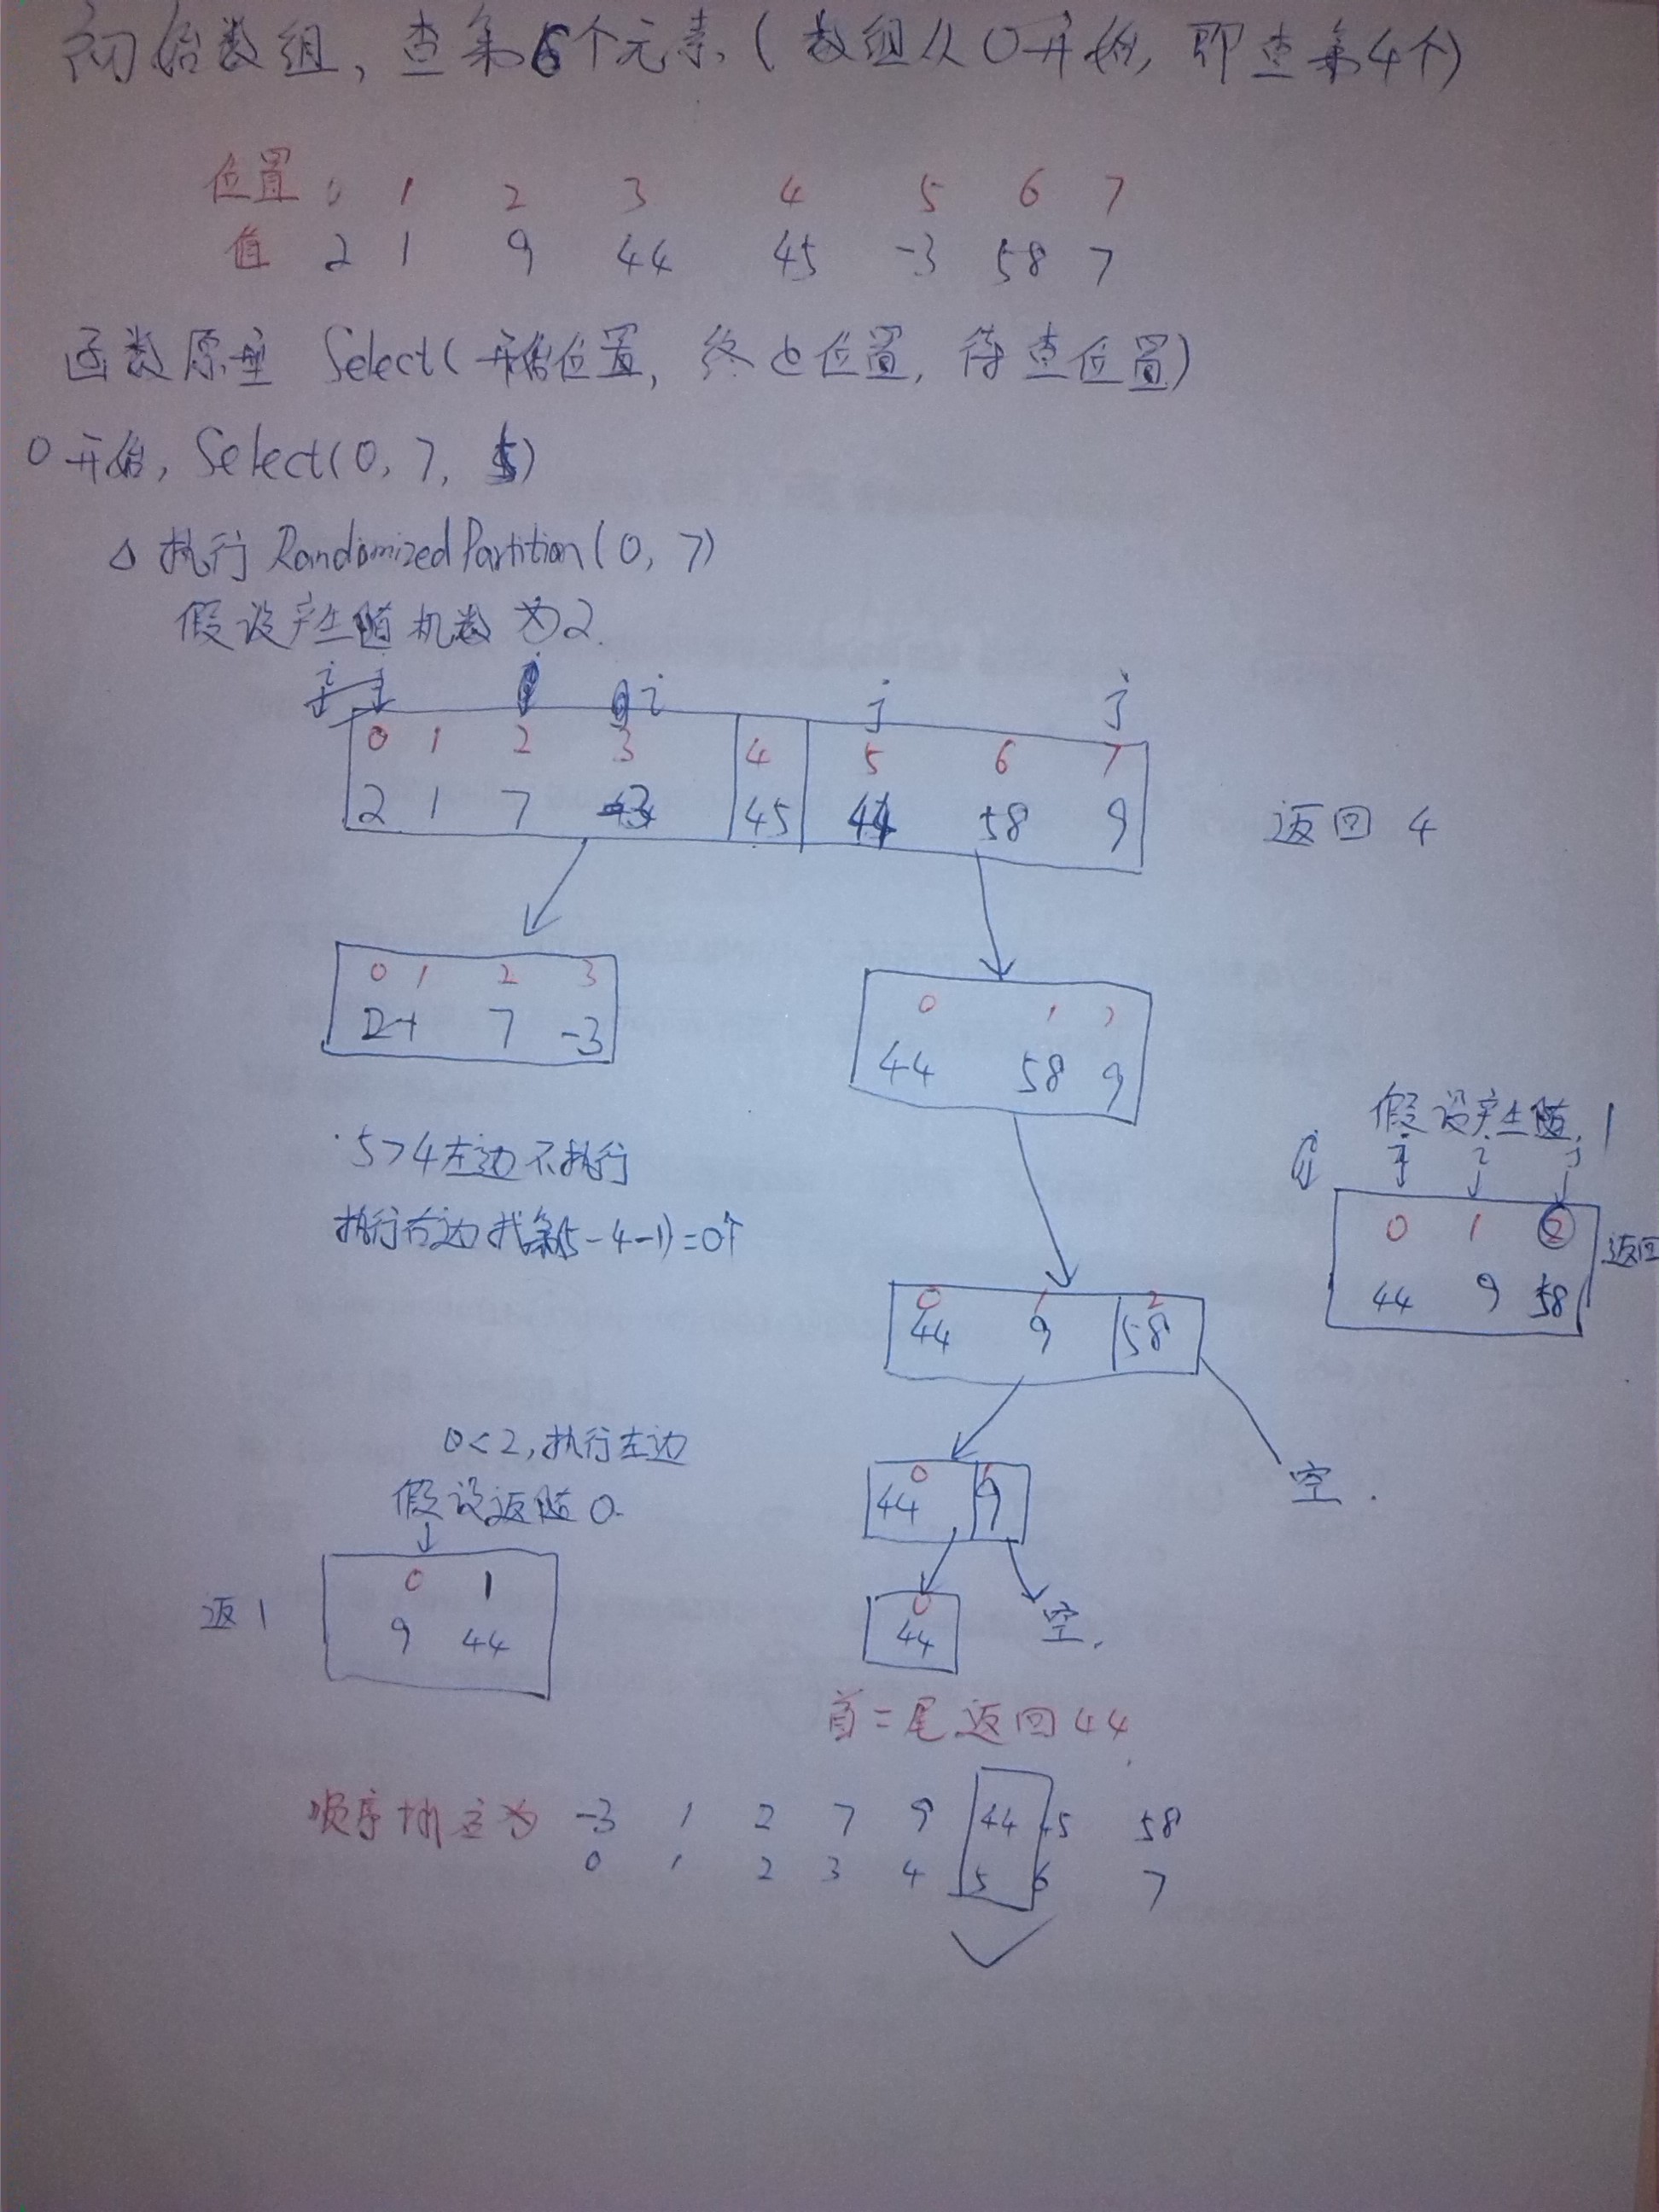 初始数组，查第6个元素（数组从0开始，即查第4个）
位置 0 1 2 3 4 5 6 7
值 2 1 9 44 45 -3 58 7
函数原型 Select(开始位置，终止位置，待查位置)
0 开始，Select(0, 7, 5)
△ 执行 RandomizedPartition(0, 7)
假设产生随机数为2.
i j i j j
0 1 2 3 4 5 6 7
2 1 7 -3 45 44 58 9
返回 4
0 1 2 3
2 1 7 -3
0 1 2
44 58 9
5>4左边不执行
执行右边找第(5-4-1)=0个
假设产生随 1
i j
0 1 2
44 9 58
返回
0 1 2
44 9 58
空.
0<2,执行左边
假设返随0.
0 1
44 9
返1
0 1
9 44
0
44
空.
首=尾返回44
顺序 为 -3 1 2 7 9 44 45 58
0 1 2 3 4 5 6 7